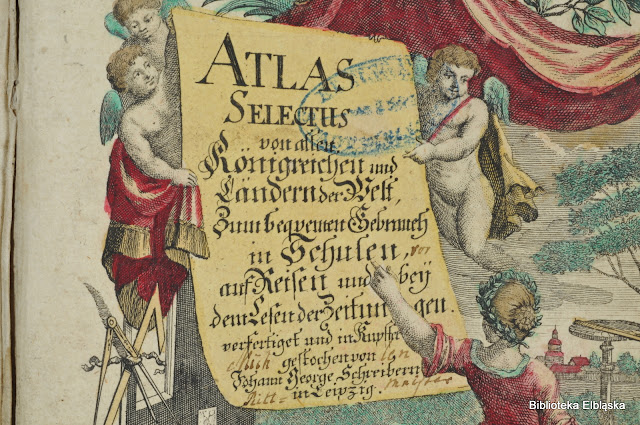 ATLAS
SELECTUS
von allen
Königreichen und
Ländern der Welt,
Zum beqvemen Gebrauch
in Schulen,
auf Reisen und bey
dem Lesen der Zeitungen.
verfertiget und in Kupffer
gestochen von
Johann George Schreibern
in Leipzig.
Biblioteka Elbląska